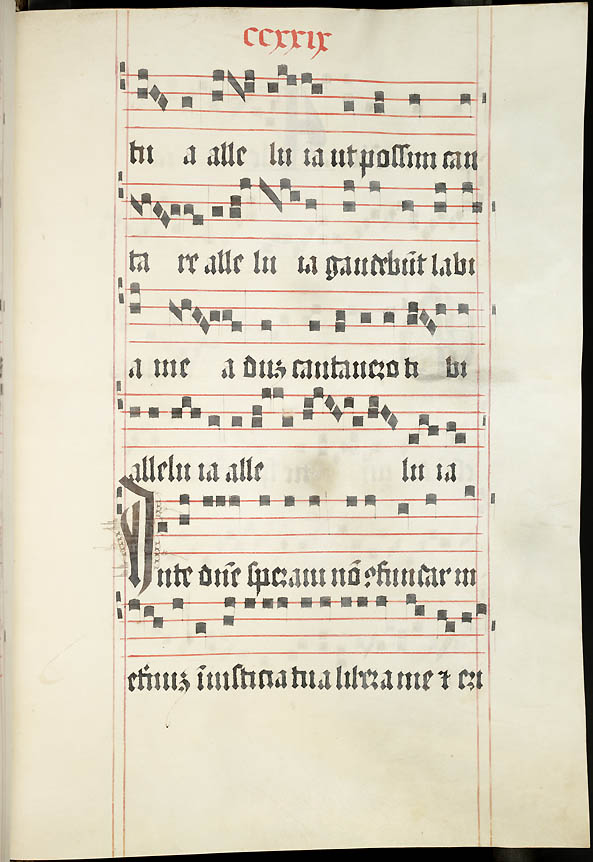 ccxxix
tu a alle lu ia ut possim can
ta re alle lu ia gaudebūt labi
a me a duz cantauero ti bi
alleluia alle lu ia
Inte dn̄e speraui nō ꝯfundar in
et̄nuz ī iusticia tua libera me ⁊ eri